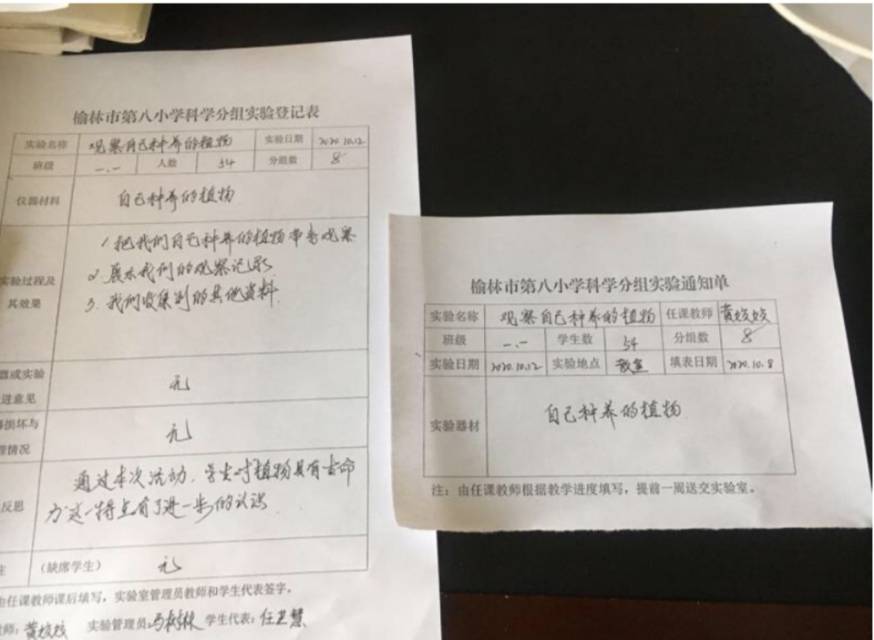 榆林市第八小学科学分组实验登记表
实验名称 观察自己种养的植物 实验日期 2020.10.12
班级 一.一 人数 54 分组数 8
仪器材料 自己种养的植物
实验过程及
其效果
1.把我们自己种养的植物带来观察
2.展示我们的观察记录
3.我们收集到的其他资料
器或实验
进意见
无
损坏与
理情况
无
反思
通过本次活动,学生对植物具有生命
力这一特点有了进一步的认识
注 (缺席学生) 无
由任课教师课后填写,实验室管理员教师和学生代表签字。
师:黄姣姣 实验管理员:冯树林 学生代表:任卫慧
榆林市第八小学科学分组实验通知单
实验名称 观察自己种养的植物 任课教师 黄姣姣
班级 一.一 学生数 54 分组数 8
实验日期 2020.10.12 实验地点 教室 填表日期 2020.10.8
实验器材 自己种养的植物
注:由任课教师根据教学进度填写,提前一周送交实验室。